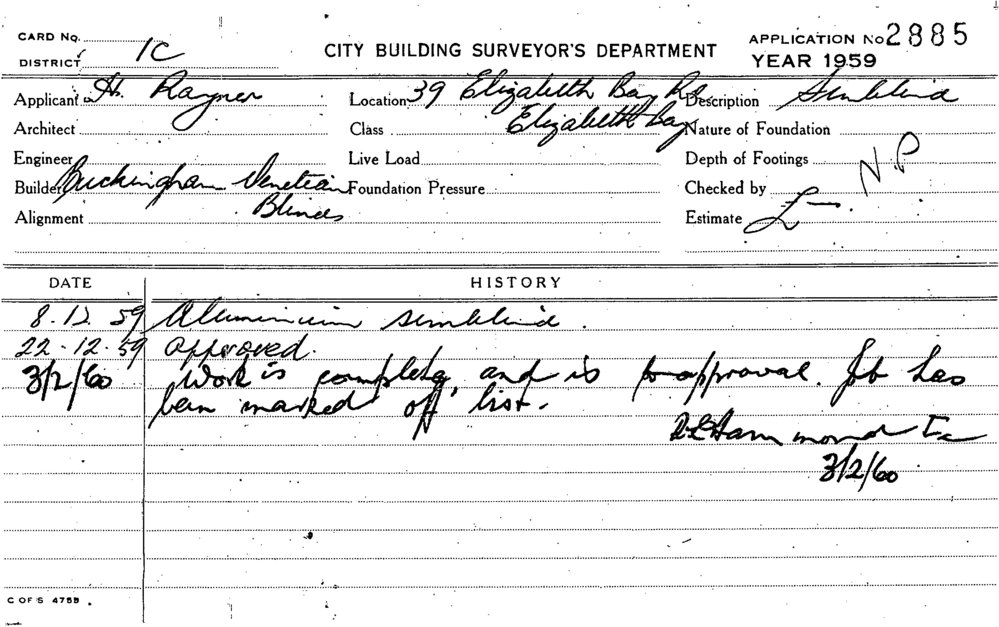 CARD No.
DISTRICT 1C
CITY BUILDING SURVEYOR'S DEPARTMENT
APPLICATION No 2885
YEAR 1959
Applicant H. Rayner
Location 39 Elizabeth Bay Rd
Elizabeth Bay
Description Sunblind
Architect
Class
Nature of Foundation
Engineer
Live Load
Depth of Footings
N.P
Builder Buckingham Venetian
Blinds
Foundation Pressure
Checked by
Alignment
Estimate £—.
DATE HISTORY
8.12.59 Aluminium sunblind.
22-12-59 approved.
3/2/60 Work is complete, and is to approval. Job has
been marked off list.
Hammond
3/2/60
C OF S 4755